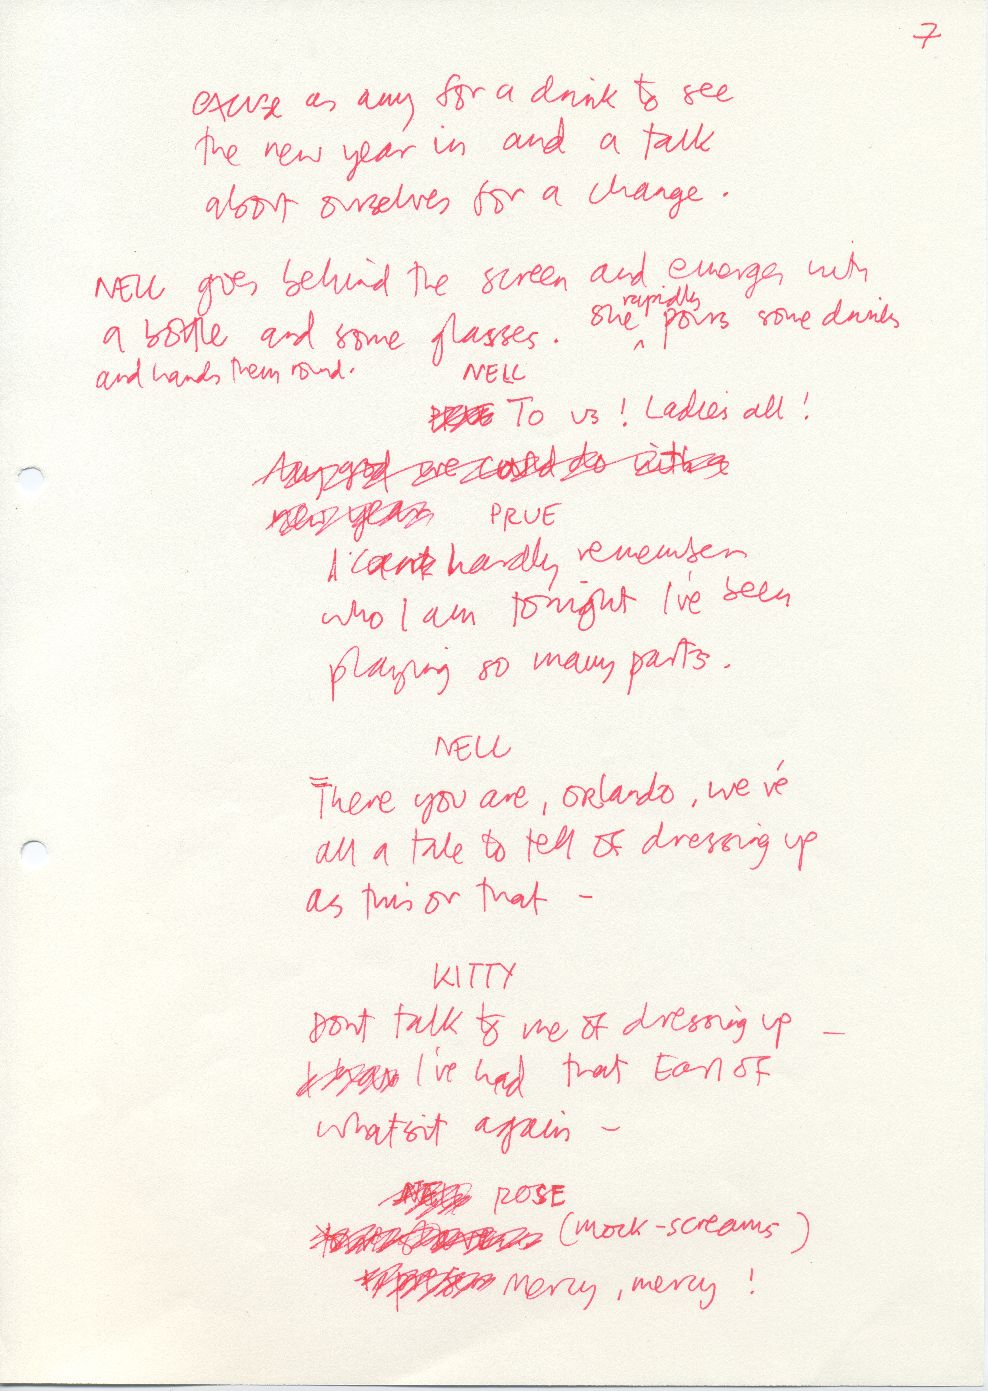 7
excuse as any for a drink to see
the new year in and a talk
about ourselves for a change.
NELL goes behind the screen and emerges with
a bottle and some glasses. She rapidly pours some drinks
and hands them round.
NELL
To us! Ladies all!
Any god we could do with a
new year
PRUE
I can hardly remember
who I am tonight I've been
playing so many parts.
NELL
There you are, Orlando, we've
all a tale to tell of dressing up
as this or that –
KITTY
Dont talk to me of dressing up –
I've had that Earl of
whatsit again –
NELL ROSE
(mock-screams)
Mercy, mercy!